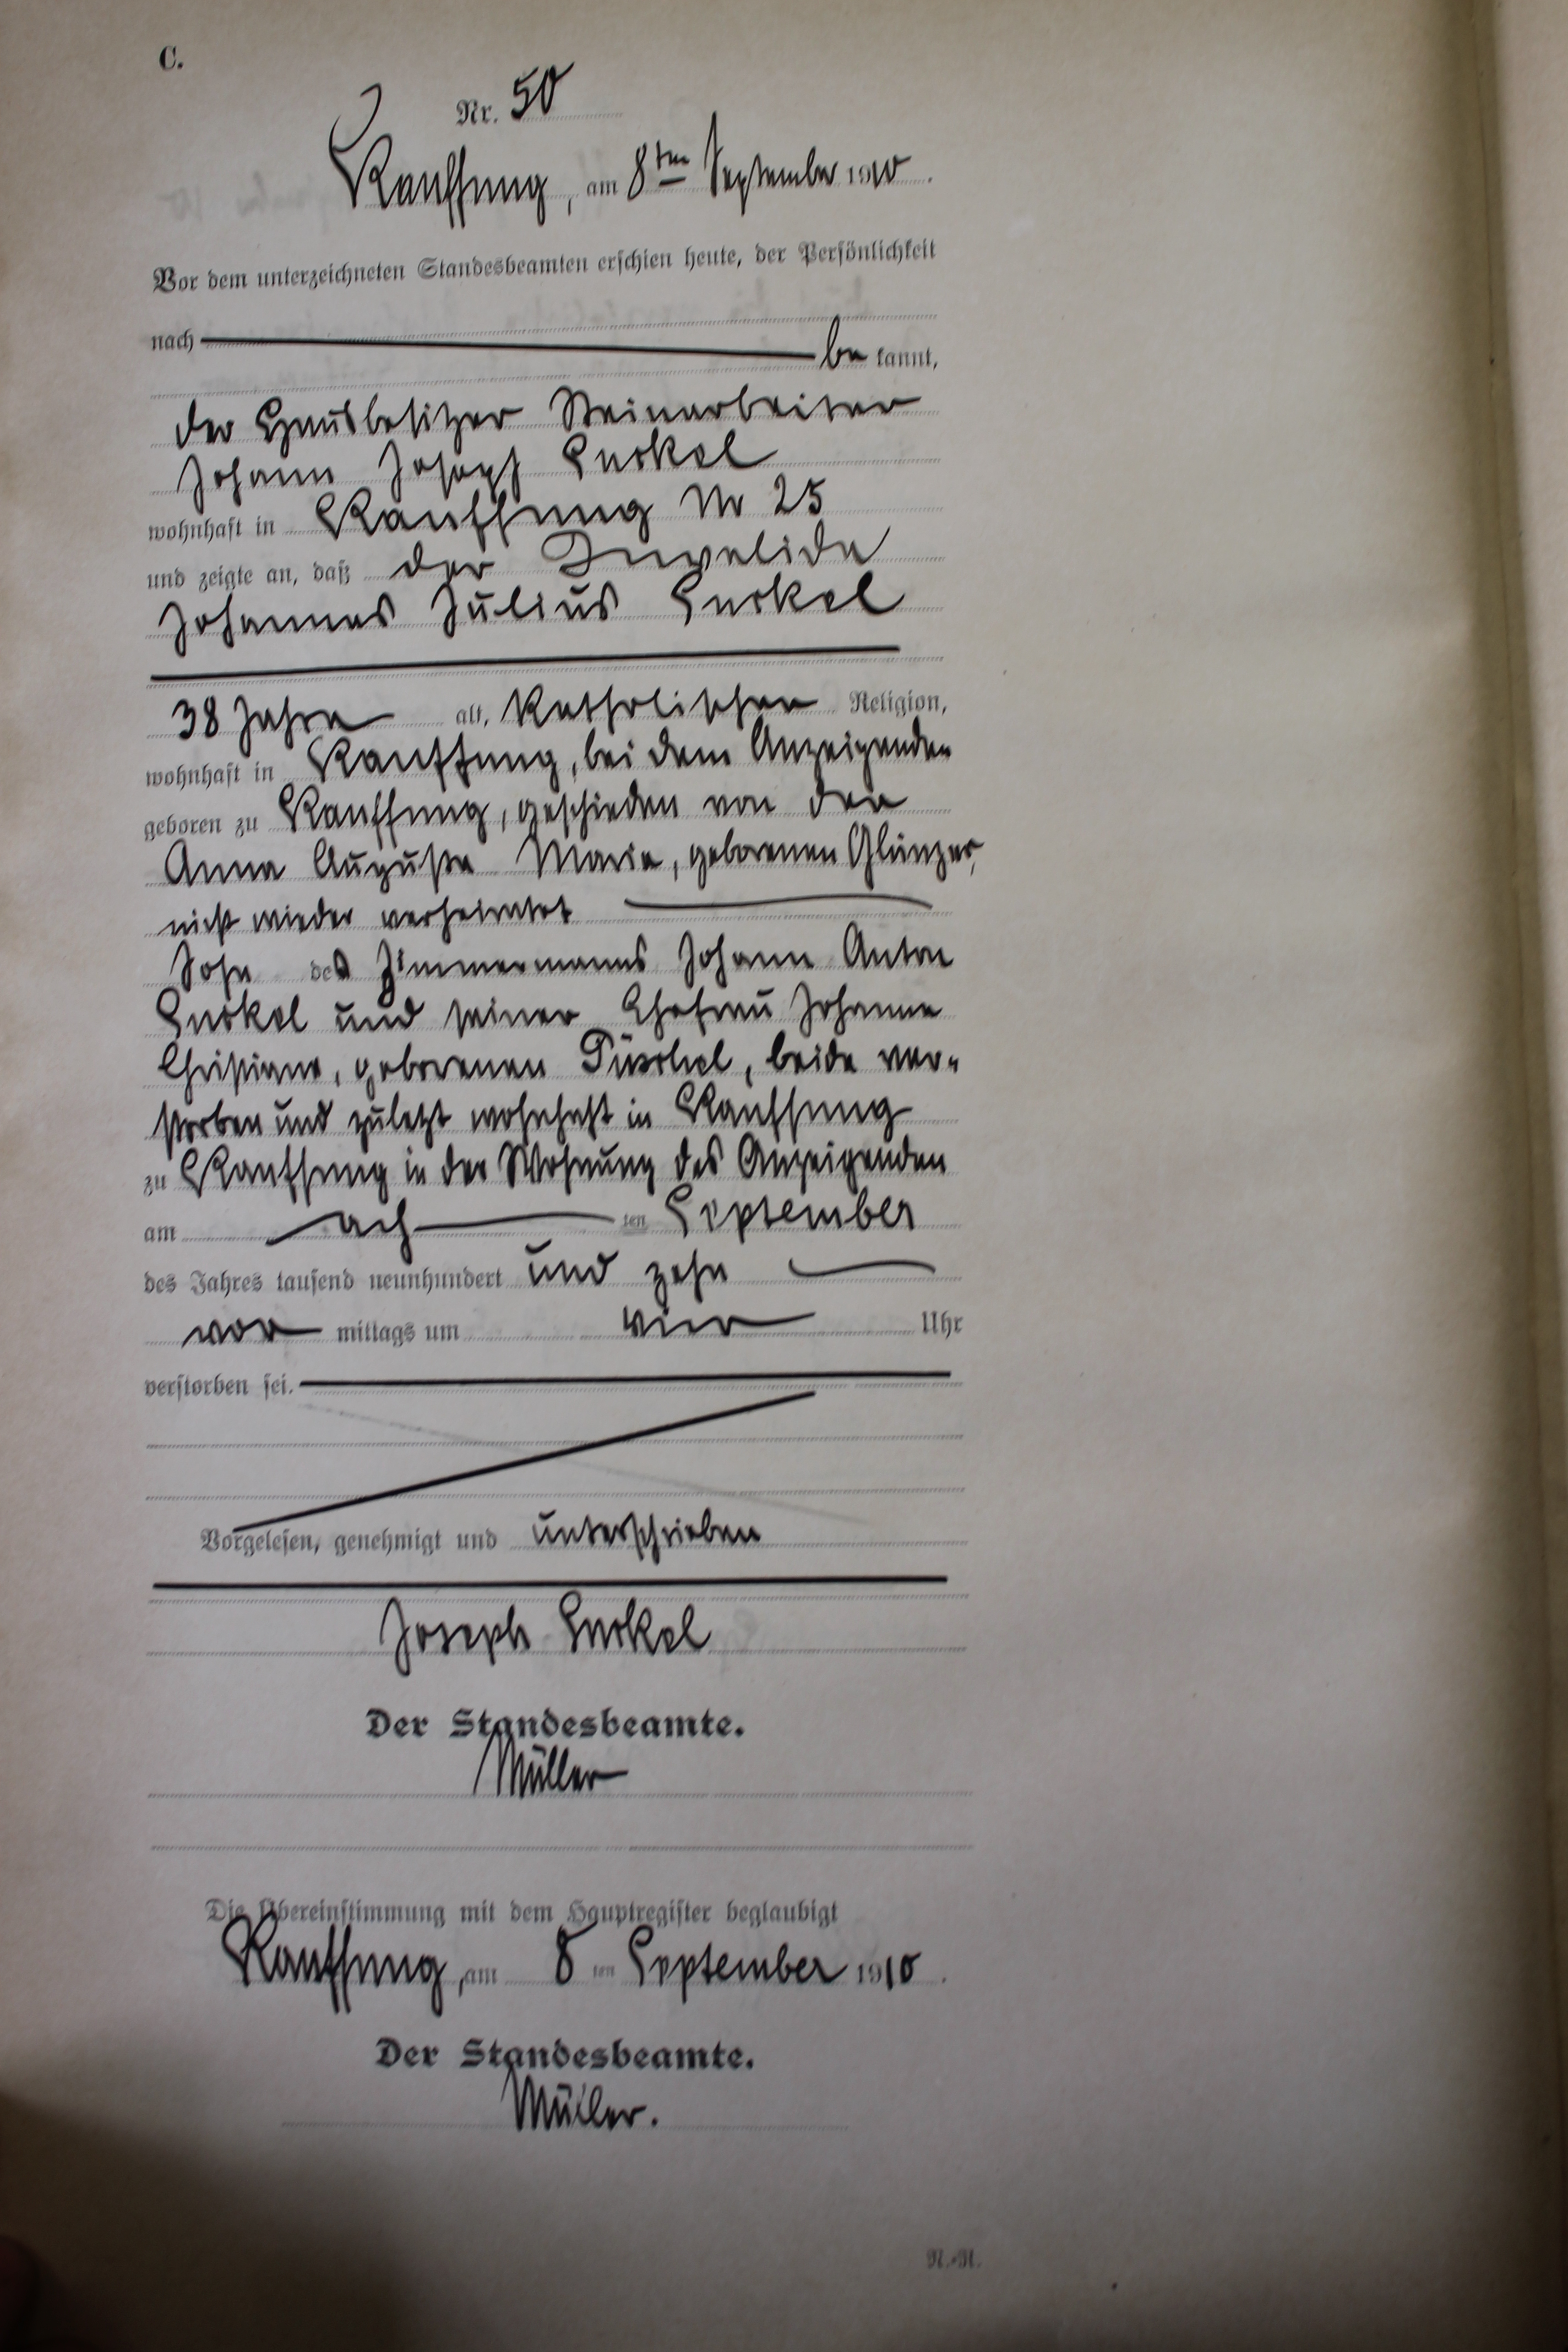 C.
Nr. 50
Kauffung, am 8ten September 1910.
Vor dem unterzeichneten Standesbeamten erschien heute, der Persönlichkeit
nach be kannt,
der Hausbesitzer Steinarbeiter
Johann Joseph
wohnhaft in Kauffung Nr 25
und zeigte an, daß der Invalide
Johannes Julius
38 Jahre alt, katholischer Religion,
wohnhaft in Kauffung, bei dem Anzeigenden
geboren zu Kauffung, geschieden von der
Anna Auguste Marie, geborenen Glänzer,
nicht wieder verheiratet
Sohn des Zimmermanns Johann Anton
und seiner Ehefrau Johanne
Christiane, geborenen , beide ver-
storben und zuletzt wohnhaft in Kauffung
zu Kauffung in der Wohnung des Anzeigenden
am ach ten September
des Jahres tausend neunhundert und zehn
vor mittags um vier Uhr
verstorben sei.
Vorgelesen, genehmigt und unterschrieben
Joseph
Der Standesbeamte.
Müller
Die Übereinstimmung mit dem Hauptregister beglaubigt
Kauffung, am 8 ten September 1910.
Der Standesbeamte.
Müller.